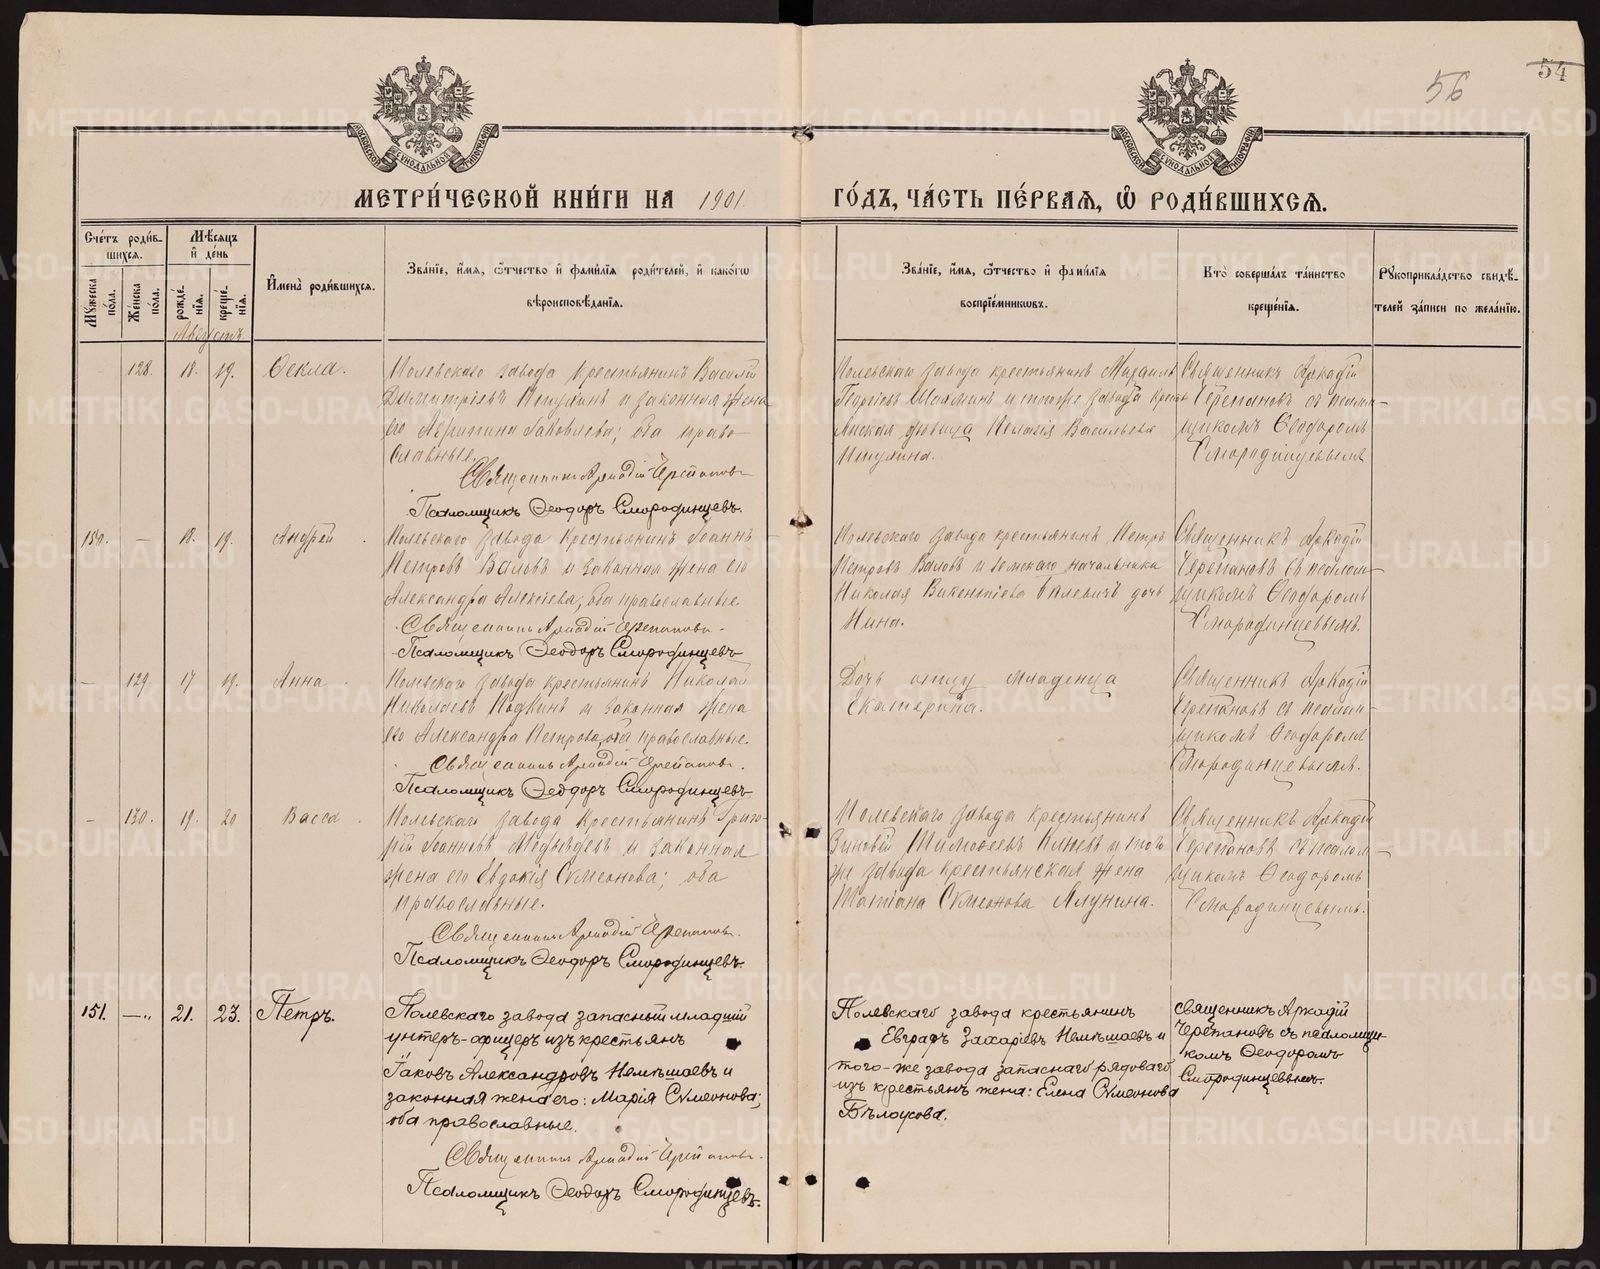 56
54
МЕТРИ́ЧЕСКОЙ КНИ́ГИ НА 1901. ГО́ДЪ, ЧА́СТЬ ПЕ́РВАЯ, Ѡ҆ РОДИ́ВШИХСЯ.
Сче́тъ роди́в-
шихся.
Мꙋ́жеска по́ла.
Же́нска по́ла.
Мѣ́сяцъ и҆ де́нь
рожде́-нїя.
креще́-нїя.
И҆мена̀ роди́вшихся.
Зва́нїе, и҆́мя, ѻ҆́тчество и҆ фами́лїя роди́телей, и҆ како́гѡ
вѣроисповѣ́данїя.
Зва́нїе, и҆́мя, ѻ҆́тчество и҆ фами́лїя
воспрїе́мникѡвъ.
Кто̀ соверша́лъ та́инство
креще́нїя.
Рꙋкоприкла́дство свидѣ́-
телей за́писи по жела́нїю.
Августъ.
128. 18. 19. Ѳекла.
Полевскаго завода крестьянинъ Василій
Димитріевъ Пичугинъ и законная жена
его Агрипина Іаковлева; оба право
славные.
Священникъ Аркадій Черепановъ
Псаломщикъ Ѳеодоръ Смородинцевъ.
Полевскаго завода крестьянинъ Михаилъ
Георгіевъ Шахминъ и тогоже завода кресть
янская дѣвица Пелагія Васильева
Священникъ Аркадій
Черепановъ съ псалом-
щикомъ Ѳеодоромъ
Смородинцевымъ
150. – 18. 19. Андрей.
Полевскаго завода крестьянинъ Іоаннъ
Петровъ Валовъ и законная жена его
Александра Алексіева; оба православные
Священникъ Аркадій Черепановъ.
Псаломщикъ Ѳеодоръ Смородинцевъ
Полевскаго завода крестьянинъ Петръ
Петровъ Валовъ и Земскаго начальника
Николая Викентіева дочь
Нина.
Священникъ Аркадій
Черепановъ съ псалом-
щикомъ Ѳеодоромъ
Смородинцевымъ.
– 129. 17 19. Анна.
Полевскаго завода крестьянинъ Николай
Николаевъ и законная жена
его Александра Петрова, оба православные.
Священникъ Аркадій Черепановъ.
Псаломщикъ Ѳеодоръ Смородинцевъ
Дочь отцу младенца
Екатерина.
Священникъ Аркадій
Черепановъ съ псалом-
щикомъ Ѳеодоромъ
Смородинцевымъ.
– 130. 19. 20 Васса.
Полевскаго завода крестьянинъ Григо-
рій Іоанновъ Медвѣдевъ и законная
жена его Евдокія Сѵмеонова; оба
православные.
Священникъ Аркадій Черепановъ.
Псаломщикъ Ѳеодоръ Смородинцевъ.
Полевскаго завода крестьянинъ
Зиновій Тимоѳеевъ и того
же завода крестьянская жена
Татіана Сѵмеонова Ялунина.
Священникъ Аркадій
Черепановъ съ псалом-
щикомъ Ѳеодоромъ
Смородинцевымъ.
151. –„ 21. 23. Петръ.
Полевскаго завода запасный младшій
унтеръ-офицеръ изъ крестьянъ
Іаковъ Александровъ Немѣшаевъ и
законная жена его: Марія Сѵмеонова;
оба православные.
Священникъ Аркадій Черепановъ.
Псаломщикъ Ѳеодоръ Смородинцевъ.
Полевскаго завода крестьянинъ
Евграфъ Захаріевъ Немѣшаевъ и
того-же завода запаснаго рядоваго
изъ крестьянъ жена: Елена Сѵмеонова
Бѣлоусова.
Священникъ Аркадій
Черепановъ съ псаломщи-
комъ Ѳеодоромъ
Смородинцевымъ.
METRIKI.GASO-URAL.RU